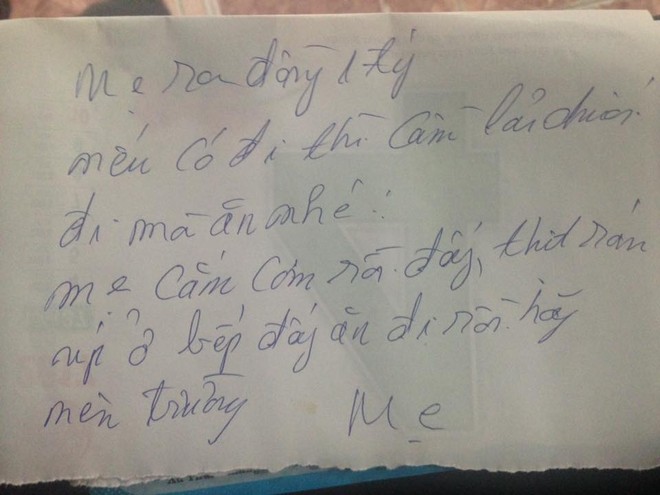 Mẹ ra đồng 1 tý
nếu có đi thì cầm lải chuối
đi mà ăn nhé!
mẹ cắm cơm rồi đấy, thịt rán
úp ở bếp đấy ăn đi rồi hãy
nên trường
Mẹ